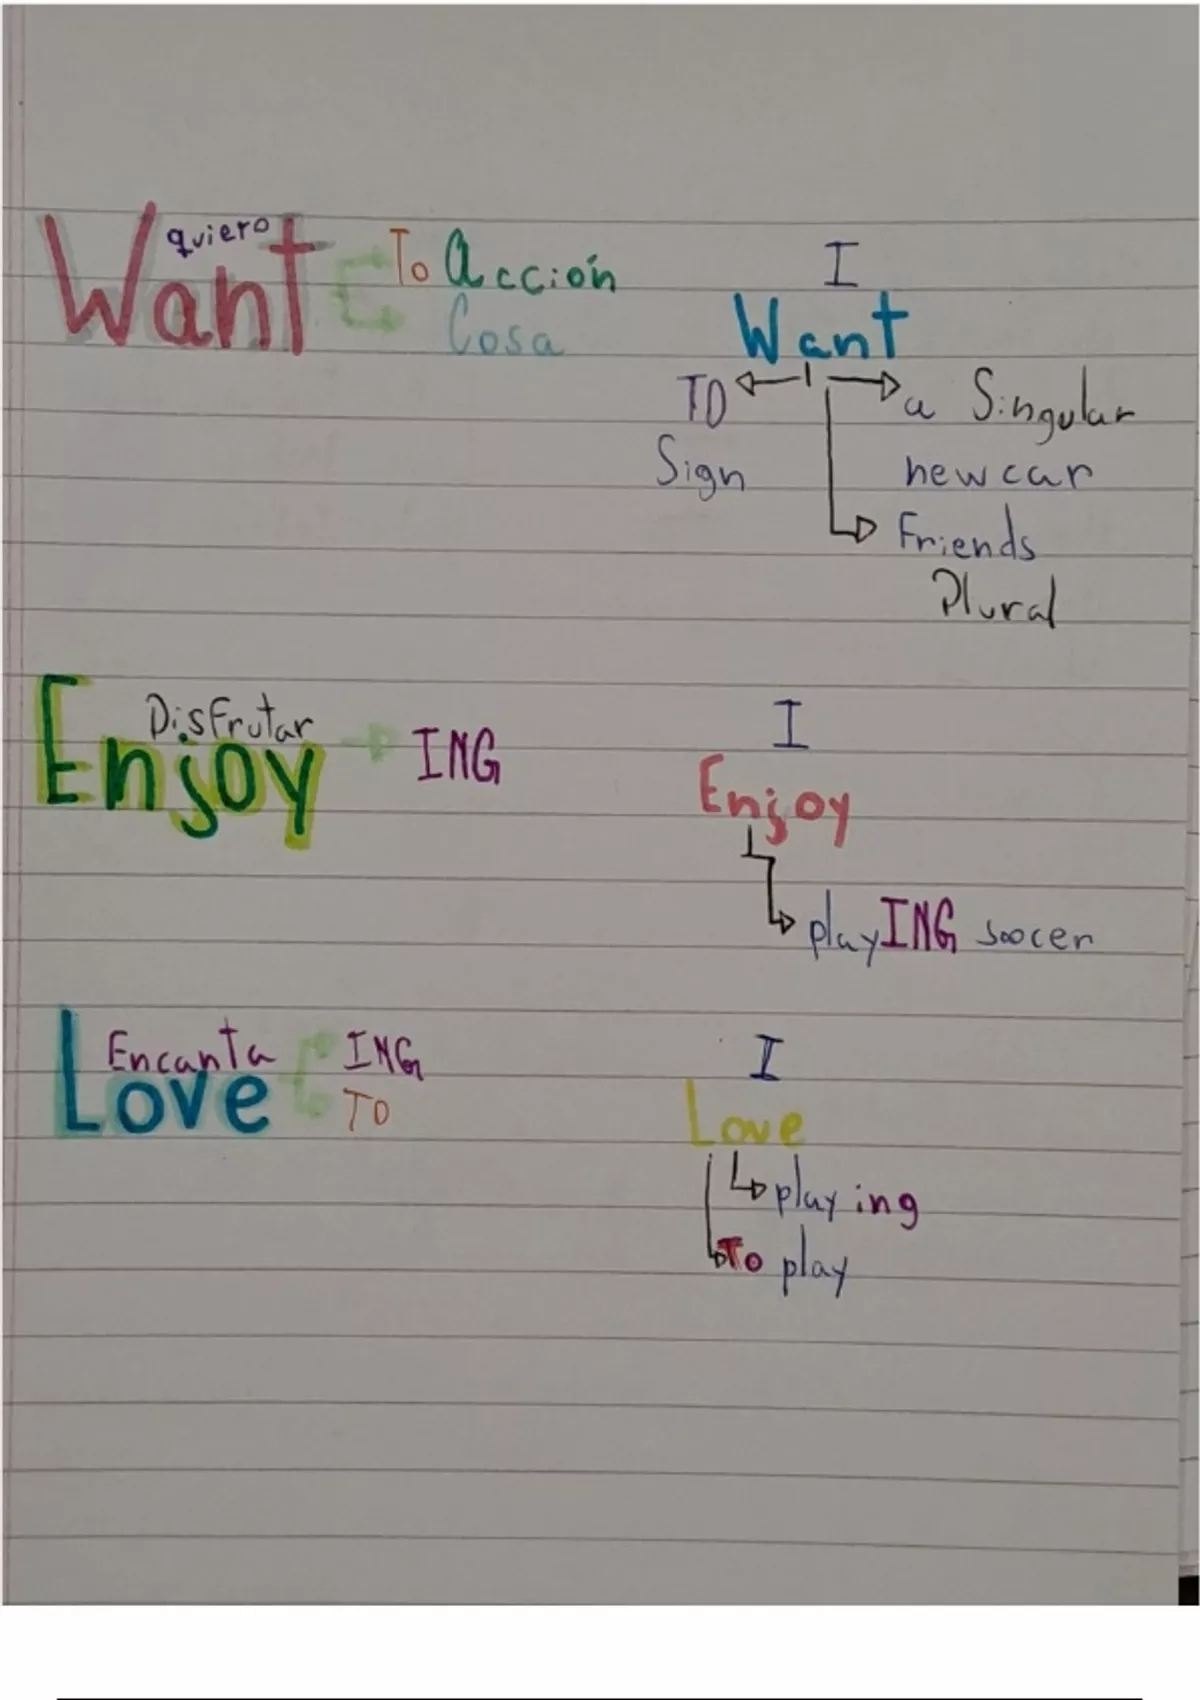 quiero
Want To Acción
Cosa
I
Want
TO a Singular
Sign new car
Friends
Plural
Disfrutar
Enjoy ING
I
Enjoy
playING soocer
Encanta ING
Love TO
I
Love
playing
To play